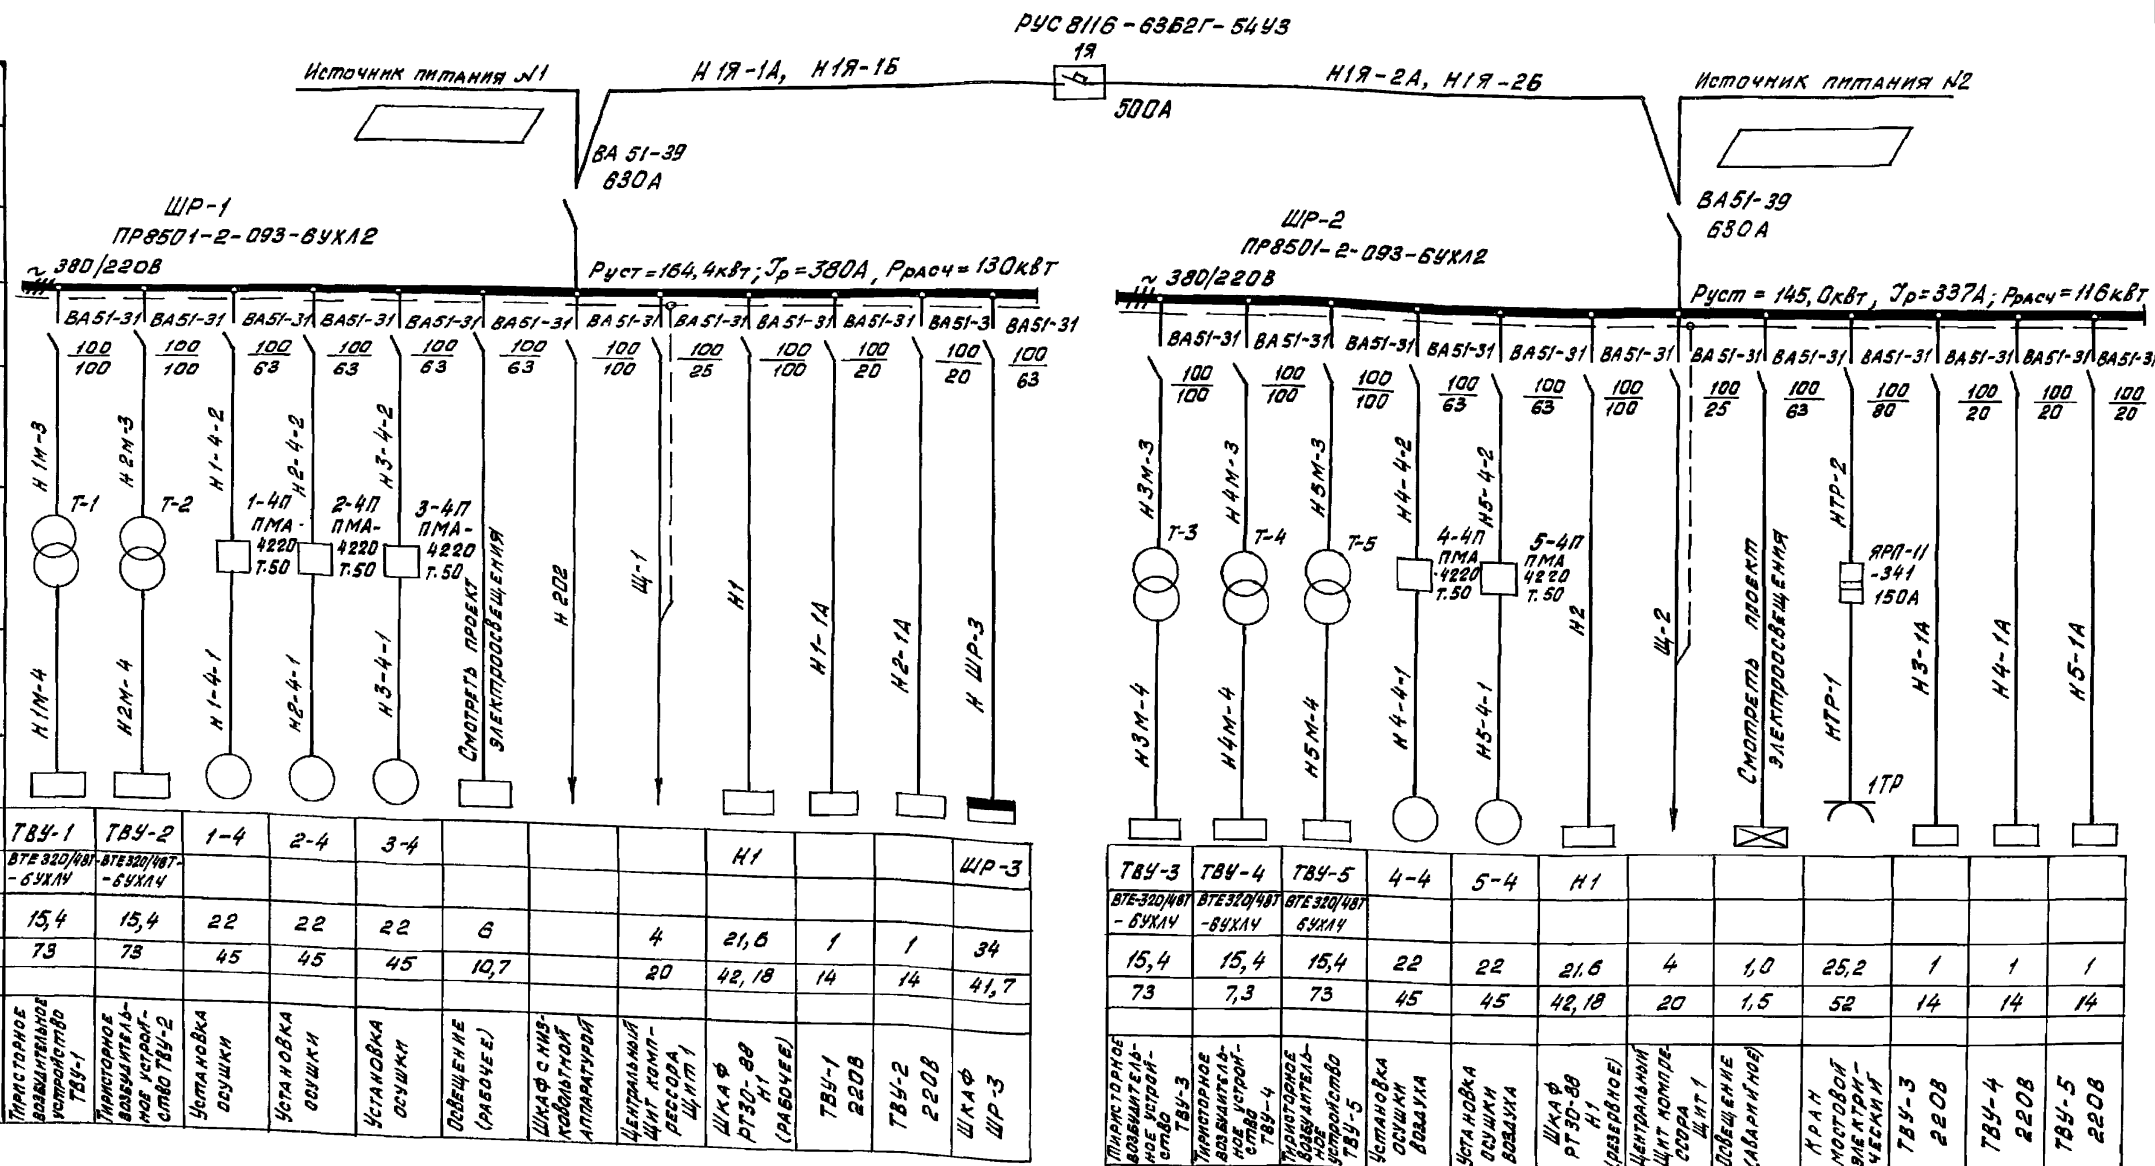 РУС 8116-63Б2Г-54У3
1Я
Источник питания №1
Н1Я-1А, Н1Я-1Б
Н1Я-2А, Н1Я-2Б
Источник питания №2
500А
ВА 51-39
630А
ВА51-39
630А
ШР-1
ПР8501-2-093-6УХЛ2
~380/220В
Руст=164,4кВт; Jр=380А, Ррасч=130кВт
ШР-2
ПР8501-2-093-6УХЛ2
~380/220В
Руст = 145,0кВт, Jр=337А; Ррасч=116кВт
ВА51-31 ВА51-31 ВА51-31 ВА51-31 ВА51-31 ВА51-31 ВА51-31 ВА51-31 ВА51-31 ВА51-31 ВА51-3 ВА51-31
100 100 100 100 100 100 100 100 100 100 100 100
100 100 63 63 63 63 100 25 100 20 20 63
Н1М-3 Н2М-3 Н1-4-2 Н2-4-2 Н3-4-2
Т-1 Т-2
1-4П ПМА-4220 Т.50
2-4П ПМА-4220 Т.50
3-4П ПМА-4220 Т.50
Н1М-4 Н2М-4 Н1-4-1 Н2-4-1 Н3-4-1
Смотреть проект
электроосвещения
Н202 Щ-1 Н1 Н1-1А Н2-1А Н ШР-3
ТВУ-1 ТВУ-2 1-4 2-4 3-4 Н1 ШР-3
ВТЕ320/48Т ВТЕ320/48Т-
-6УХЛ4 -6УХЛ4
15,4 15,4 22 22 22 6 4 21,6 1 1 34
73 73 45 45 45 10,7 20 42,18 14 14 41,7
Тиристорное
возбудительное
устройство
ТВУ-1
Тиристорное
возбудитель-
ное устрой-
ство ТВУ-2
Установка
осушки
Установка
осушки
Установка
осушки
Освещение
(рабочее)
Шкаф с низ-
ковольтной
аппаратурой
Центральный
щит комп-
рессора
Щит 1
Шкаф
РТ30-88
Н1
(рабочее)
ТВУ-1
220В
ТВУ-2
220В
Шкаф
ШР-3
ВА51-31 ВА51-31 ВА51-31 ВА51-31 ВА51-31 ВА51-31 ВА51-31 ВА51-31 ВА51-31 ВА51-31 ВА51-31 ВА51-31
100 100 100 100 100 100 100 100 100 100 100 100
100 100 100 63 63 100 25 63 80 20 20 20
Н3М-3 Н4М-3 Н5М-3 Н4-4-2 Н5-4-2 НТР-2
Т-3 Т-4 Т-5
4-4П ПМА-4220 Т.50
5-4П ПМА 4220 Т.50
ЯРП-11
-341
150А
Н3М-4 Н4М-4 Н5М-4 Н4-4-1 Н5-4-1 Н2 Щ-2
Смотреть проект
электроосвещения
НТР-1 Н3-1А Н4-1А Н5-1А
1ТР
ТВУ-3 ТВУ-4 ТВУ-5 4-4 5-4 Н1
ВТЕ-320/48Т ВТЕ320/48Т ВТЕ320/48Т
-6УХЛ4 -6УХЛ4 6УХЛ4
15,4 15,4 15,4 22 22 21.6 4 1,0 25,2 1 1 1
73 7,3 73 45 45 42,18 20 1,5 52 14 14 14
Тиристорное
возбудитель-
ное устрой-
ство
ТВУ-3
Тиристорное
возбудитель-
ное устрой-
ство
ТВУ-4
Тиристорное
возбудитель-
ное
устройство
ТВУ-5
Установка
осушки
воздуха
Установка
осушки
воздуха
Шкаф
РТ30-88
Н1
(резервное)
Центральный
щит компре-
ссора
Щит 1
Освещение
(аварийное)
Кран
мостовой
электри-
ческий
ТВУ-3
220В
ТВУ-4
220В
ТВУ-5
220В